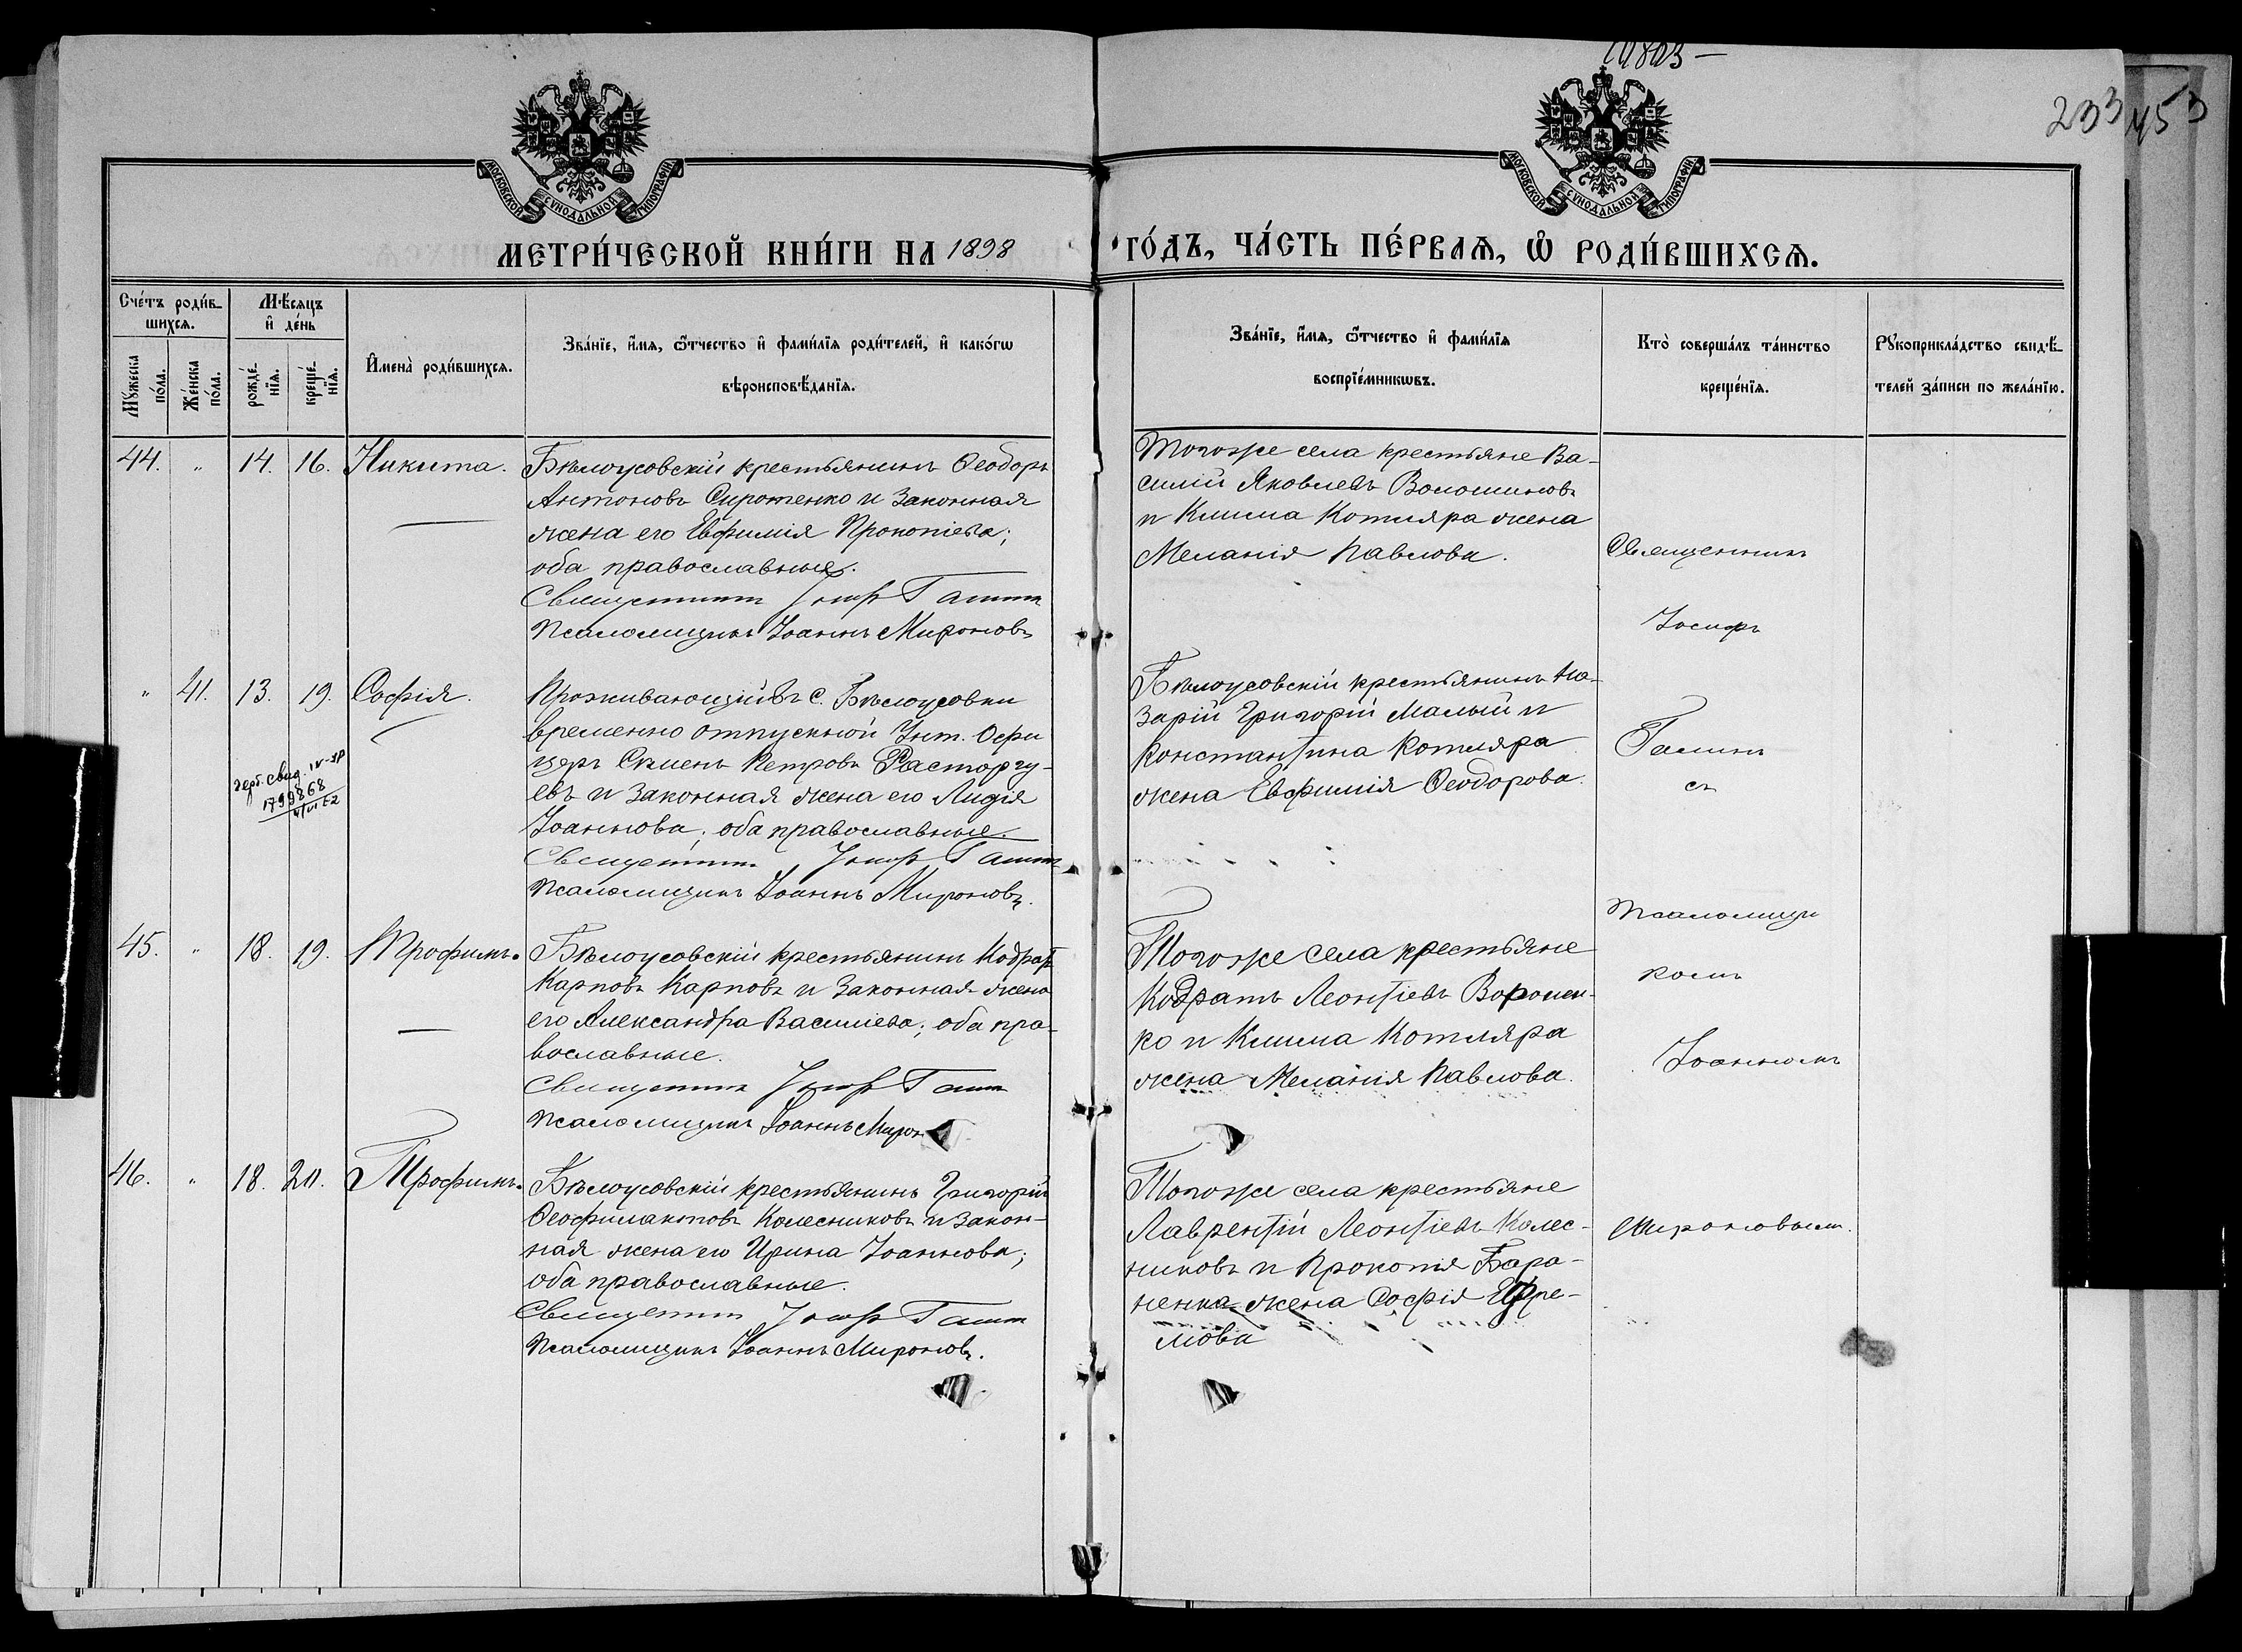 10803 –
233 453
МОСКОВСКОЙ СѴНОДАЛЬНОЙ ТИПОГРАФІИ
МОСКОВСКОЙ СѴНОДАЛЬНОЙ ТИПОГРАФІИ
МЕТРИ́ЧЕСКОЙ КНИ́ГИ НА 1898 ГО́ДЪ, ЧА́СТЬ ПЕ́РВАѦ, Ѡ҆ РОДИ́ВШИХСѦ.
Сче́тъ роди́в-
шихсѧ.
Мѣ́сѧцъ
и҆ де́нь
Мꙋ́жеска по́ла.
Же́нска по́ла.
рожде́-
нїѧ.
креще́-
нїѧ.
И҆мена̀ роди́вшихсѧ.
Зва́нїе, и҆́мѧ, ѻ҆́тчество и҆ фами́лїѧ роди́телей, и҆ како́гѡ
вѣроисповѣ́данїѧ.
Зва́нїе, и҆́мѧ, ѻ҆́тчество и҆ фами́лїѧ
воспрїе́мникѡвъ.
Кто̀ соверша́лъ та́инство
креще́нїѧ.
Рꙋкоприкла́дство свидѣ́-
телей за́писи по жела́нїю.
44. „ 14. 16. Никита.
Бѣлоусовскій крестьянинъ Ѳеодоръ
Антоновъ Сиротенко и законная
жена его Евфимія Прокопіева;
оба православные.
Священникъ Іосифъ Галинъ
Псаломщикъ Іоаннъ Мироновъ
Тогоже села крестьяне Ва-
силій Яковлевъ Волошиновъ
и Клима Котляра жена
Меланія Павлова.
„ 41. 13. 19. Софія.
герб. свид.
1799868
Проживающій въ с. Бѣлоусовки
временно отпускной Унт. Офи
церъ Семенъ Петровъ Расторгу-
евъ и законная жена его Лидія
Іоаннова; оба православные.
Священникъ Іосифъ Галинъ
Псаломщикъ Іоаннъ Мироновъ.
Бѣлоусовскій крестьянинъ На-
зарій Григорій Малый и
Константина Котляра
жена Евфимія Ѳеодорова.
45. „ 18. 19. Трофимъ.
Бѣлоусовскій крестьянинъ Кодратъ
Карповъ Карповъ и законная жена
его Александра Василіева; оба пра-
вославные.
Священникъ Іосифъ Галинъ
Псаломщикъ Іоаннъ Мирон
Тогоже села крестьяне
Кодратъ Леонтіевъ Воронен-
ко и Клима Котляра
жена Меланія Павлова.
46. „ 18. 20. Трофимъ.
Бѣлоусовскій крестьянинъ Григорій
Ѳеофилактовъ Колесниковъ и закон-
ная жена его Ирина Іоаннова;
оба православные.
Священникъ Іосифъ Галинъ
Псаломщикъ Іоаннъ Мироновъ.
Тогоже села крестьяне
Лаврентій Леонтіевъ Колес-
никовъ и Прокопія Бара-
ненка жена Софія Ефре-
мова
Священникъ
Іосифъ
Галинъ
съ
Псаломщи
комъ
Іоанномъ
Мироновымъ.